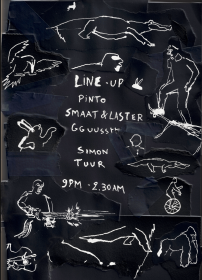 LINE-UP
PINTO
SMAAT & LASTER
GGUUSSTT
SIMON
TUUR
9PM - 2.30AM